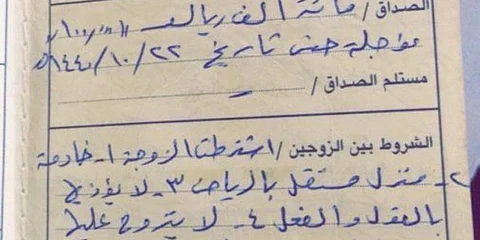 الصداق / مائة ألف ريال ١٠٠,٠٠٠
مؤجلة حتى تاريخ ١٤٤٠/١٠/٢٢
مستلم الصداق /
الشروط بين الزوجين / اشترطت الزوجة ١- خادمة
٢- منزل مستقل بالرياض ٣- لا يؤذيها
بالقول والفعل ٤- لا يتزوج عليها